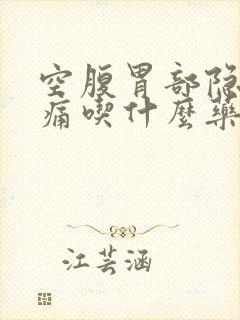 空腹胃部隐
痛喫什麼藥
江芸涵